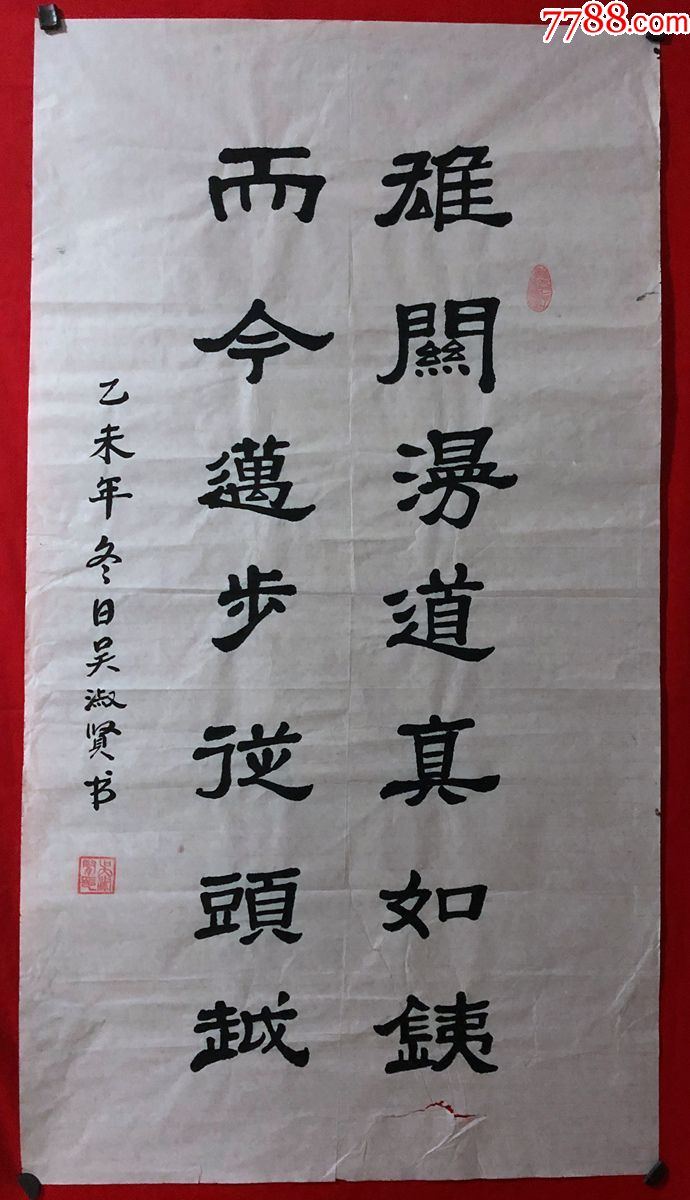 7788.com
雄關漫道真如銕
而今邁步從頭越
乙未年冬日吴淑贤书